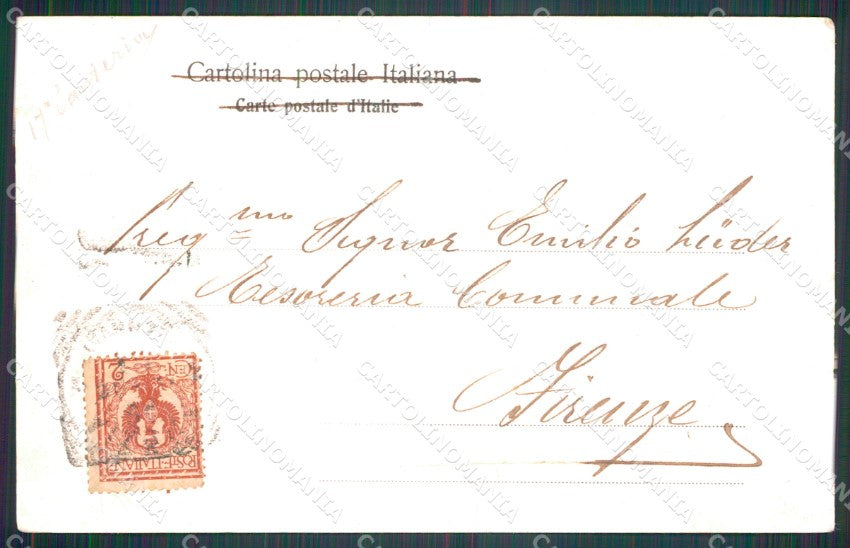 Cartolina postale Italiana
Carte postale d'Italie
Preg mo Signor Emilio Lüder
Tesoreria Comunale
Firenze
CEN 2
POSTE ITALIANE
CARTOLINOMANIA